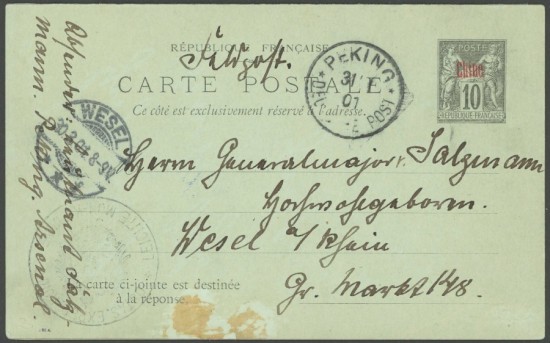 RÉPUBLIQUE FRANÇAISE
Feldpost.
CARTE POSTALE
Ce côté est exclusivement réservé à l'adresse.
POSTE
Chine
10
RÉPUBLIQUE FRANÇAISE
PEKING
31
01
DEUTSCHE POST
WESEL
8-9V
Herrn Generalmajor Salzmann
Hochwohlgeboren.
Wesel a/Rhein
Gr. Markt 148.
La carte ci-jointe est destinée
à la réponse.
mann. Peking. Arsenal.